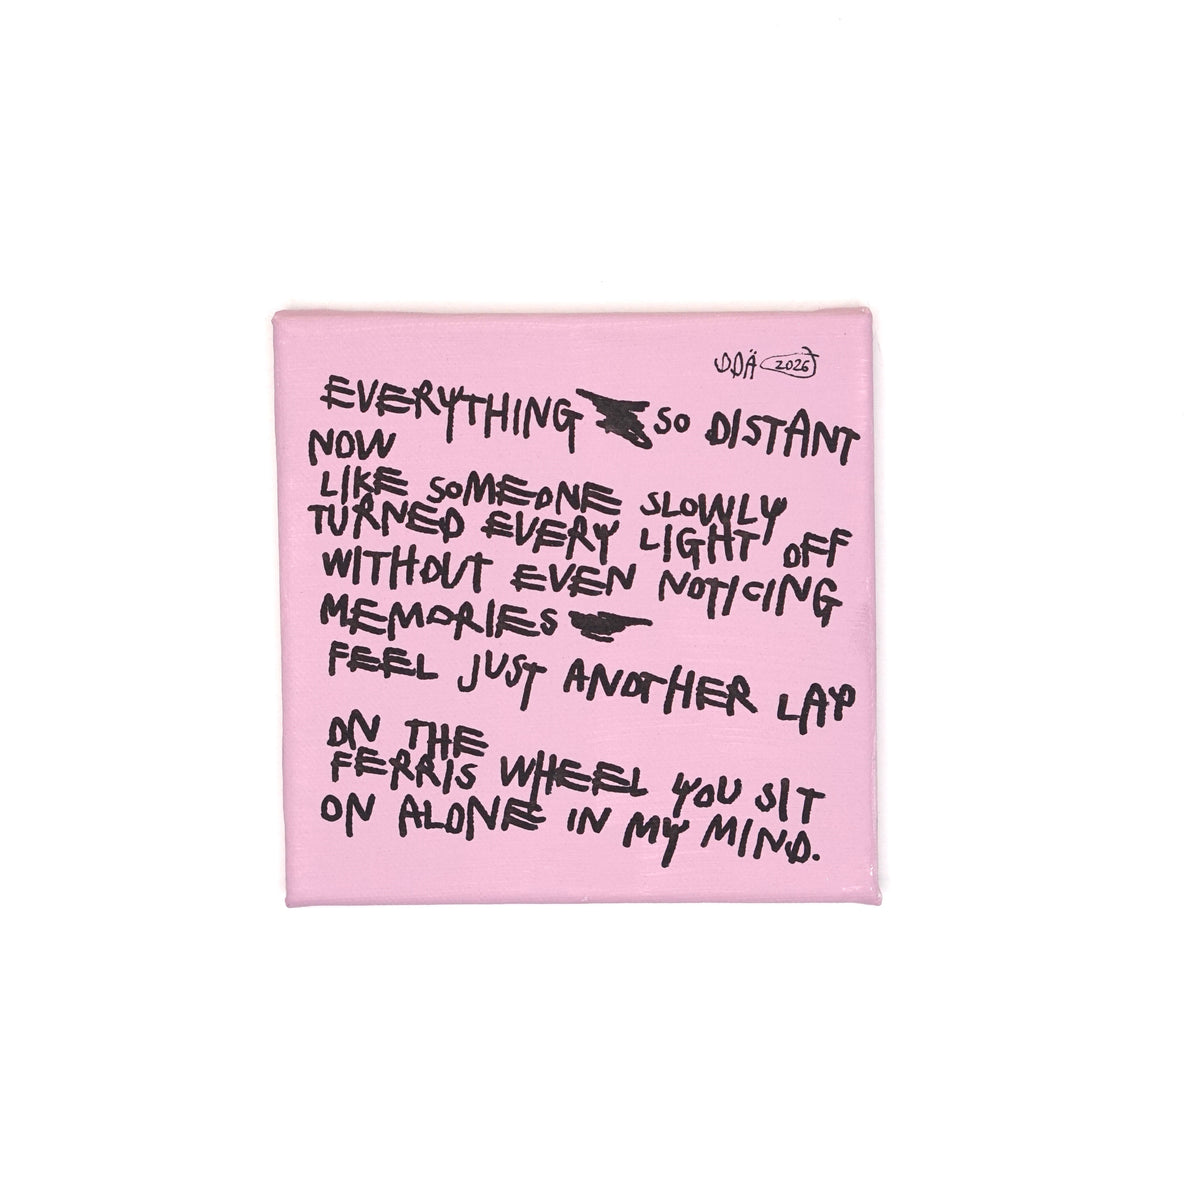 DDÄ 2026
EVERYTHING SO DISTANT
NOW
LIKE SOMEONE SLOWLY
TURNED EVERY LIGHT OFF
WITHOUT EVEN NOTICING
MEMORIES
FEEL JUST ANOTHER LAP
ON THE
FERRIS WHEEL YOU SIT
ON ALONE IN MY MIND.